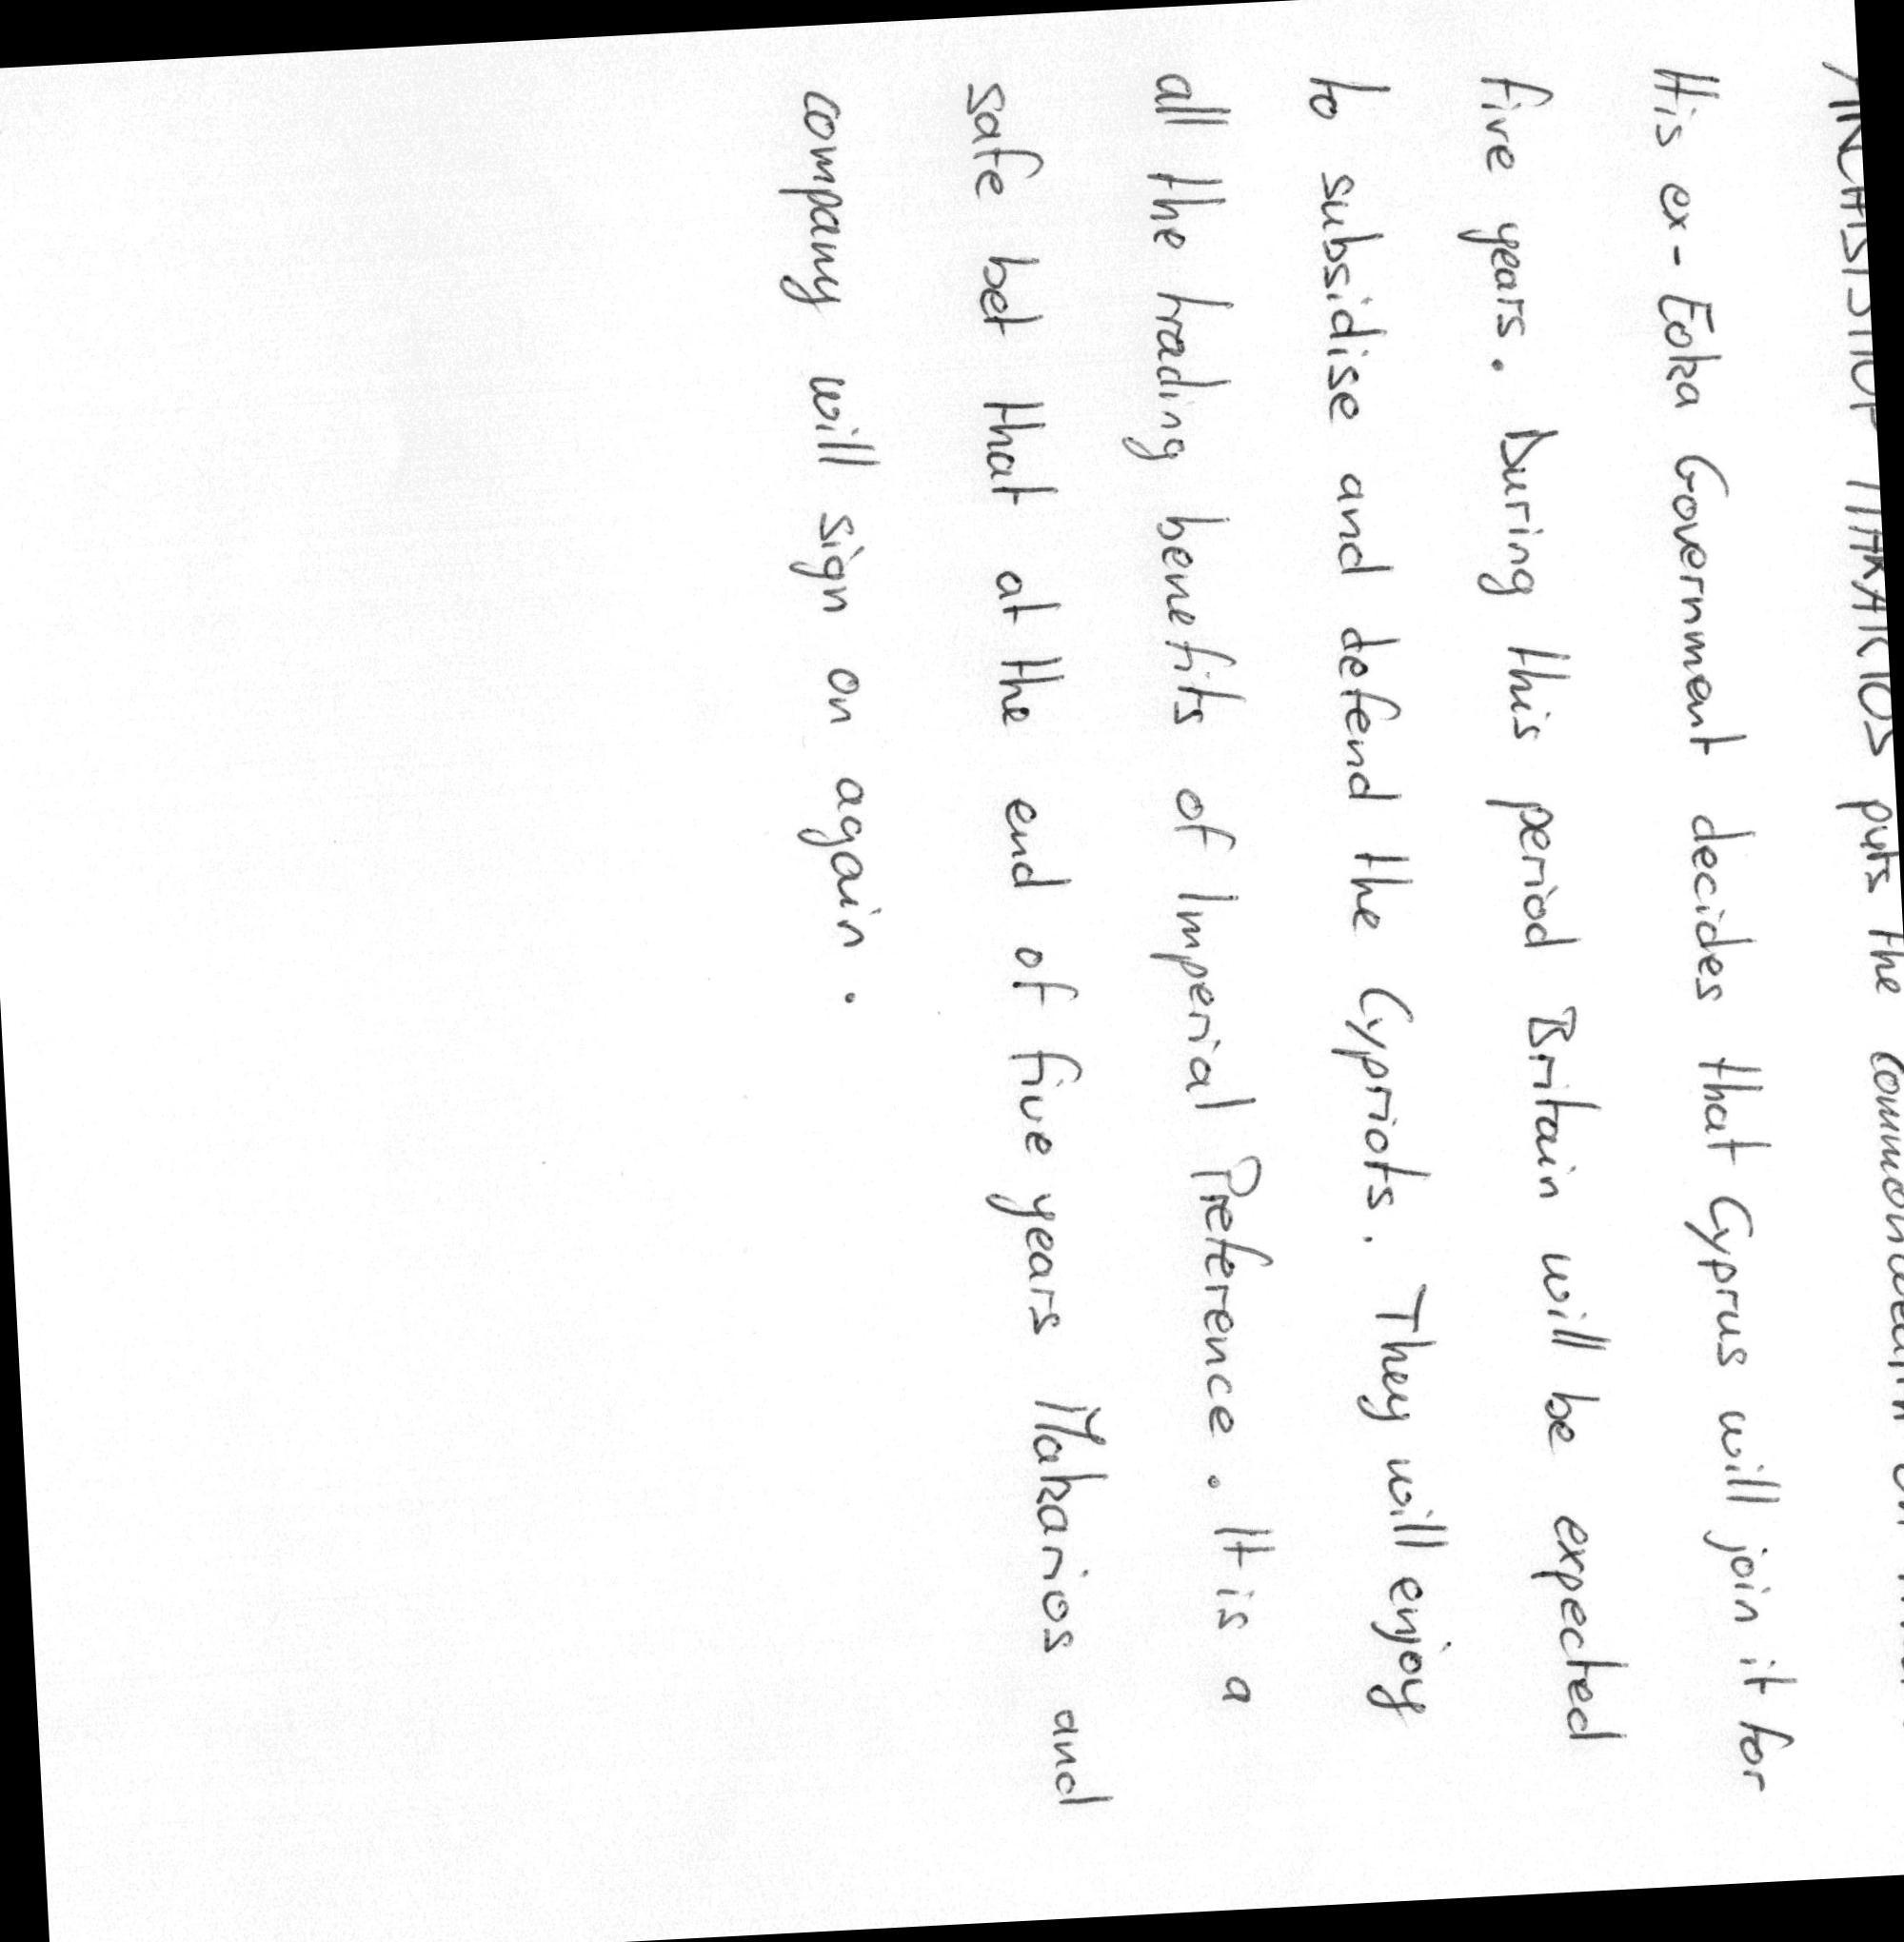 ARCHBISHOP MAKARIOS puts the Commonwealth on
His ex-Eoka Government decides that Cyprus will join it for
five years. During this period Britain will be expected
to subsidise and defend the Cypriots. They will enjoy
all the trading benefits of Imperial Preference. It is a
safe bet that at the end of five years Makarios and
company will sign on again.